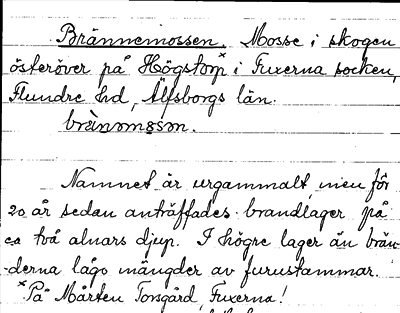 Brännemossen. Mosse i skogen
österöver på Högstorp x i Fuxerna socken,
Flundre hd, Älfsborgs län.
brànomosən.
Namnet är urgammalt, men för
20 år sedan anträffades brandlager på
ca två alnars djup. I högre lager än brän-
derna lågo mängder av furustammar.
x På Mårten Torsgård, Fuxerna!